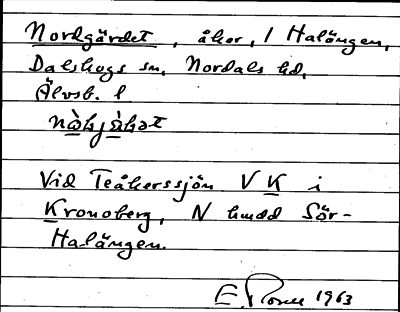 Nordgärdet, åker, 1 Halängen,
Dalskogs sn, Nordals hd,
Älvsb. l
Vid Teåkerssjön V K i
Kronoberg, N hmdd Sör-
Halängen.
E. 1963